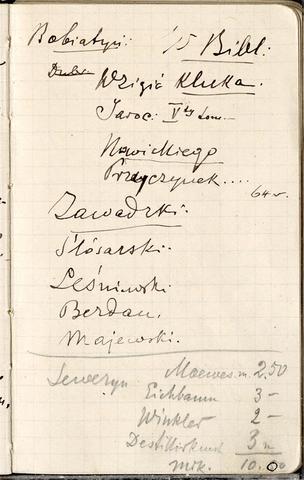 Bobiatyń: 15 Bibl:
Wziąć Klucka.
Jaroc. V
Nawickiego
Przyczynek....
64r.
Zawadzki.
Ślósarski.
Leśniewski
Berdau.
Majewski.
Seweryn Moewes. m. 2.50
Eichbaum 3-
Winkler 2-
Destillirkunst 3
mrk. 10.00